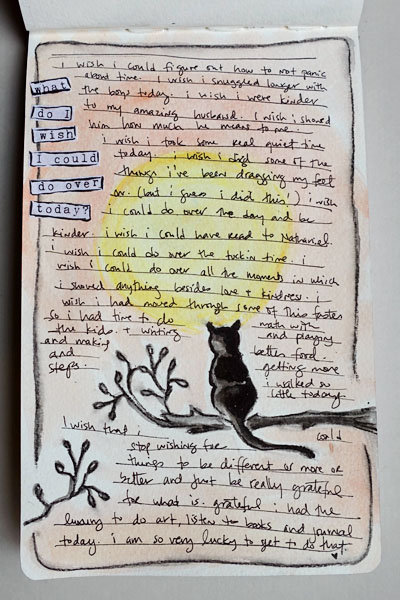 what
do I
wish
I could
do over
today?
i wish i could figure out how to not panic
about time. i wish i snuggled longer with
the boys today. i wish i were kinder
to my amazing husband. i wish i showed
him how much he means to me.
i wish i took some real quiet time
today. i wish i did some of the
things i've been dragging my feet
on. (but i guess i did this!) i wish
i could do over the day and be
kinder. i wish i could have read to Nathaniel.
i wish i could do over the tuckin time. i
wish i could do over all the moments in which
i showed anything besides love + kindness. i
wish i had moved through some of this faster
so i had time to do math with
the kids. + writing and playing
and making better food.
and getting more
steps. i walked so
little today.
I wish that i could
stop wishing for
things to be different or more or
better and just be really grateful
for what is. grateful i had the
luxury to do art, listen to books and journal
today. i am so very lucky to get to do that.